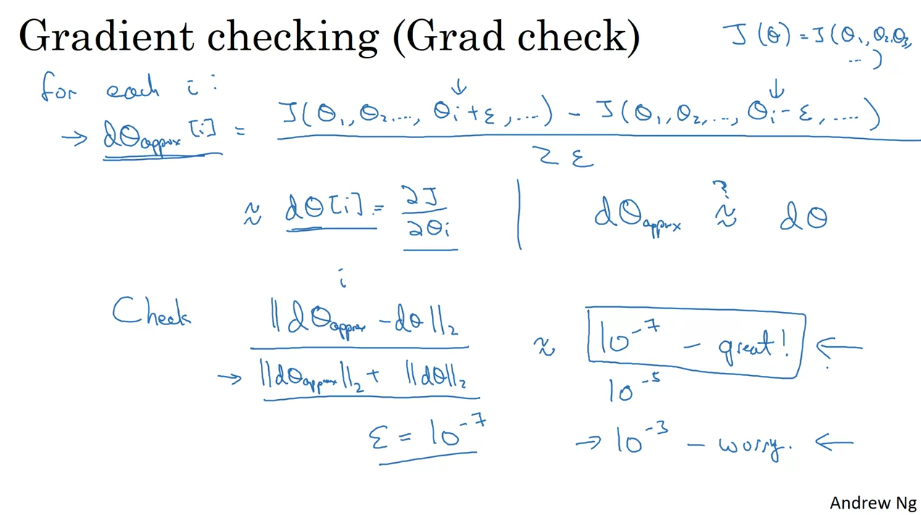 Gradient checking (Grad check)
J(θ) = J(θ₁, θ₂, θ₃, ...)
for each i:
→ dθapprox[i] = J(θ₁, θ₂, ..., θᵢ+ε, ...) - J(θ₁, θ₂, ..., θᵢ-ε, ....) / 2ε
≈ dθ[i] = ∂J/∂θᵢ | dθapprox ≈? dθ
i
Check ‖dθapprox - dθ‖₂ / ‖dθapprox‖₂ + ‖dθ‖₂ ≈ 10⁻⁷ - great! ←
10⁻⁵
ε = 10⁻⁷ → 10⁻³ - worry. ←
Andrew Ng